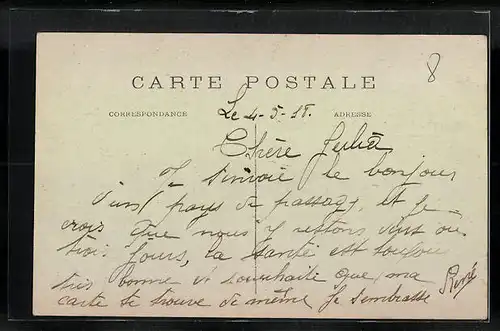 8
CARTE POSTALE
CORRESPONDANCE ADRESSE
Le 4-5-18.
Chère Julia
Je t'envoie le bonjour
d'un pays de passage, et je
crois que nous y restons deux ou
trois jours, la santé est toujou
rs bonne et souhaite que ma
carte te trouve de même Je t'embrasse
René